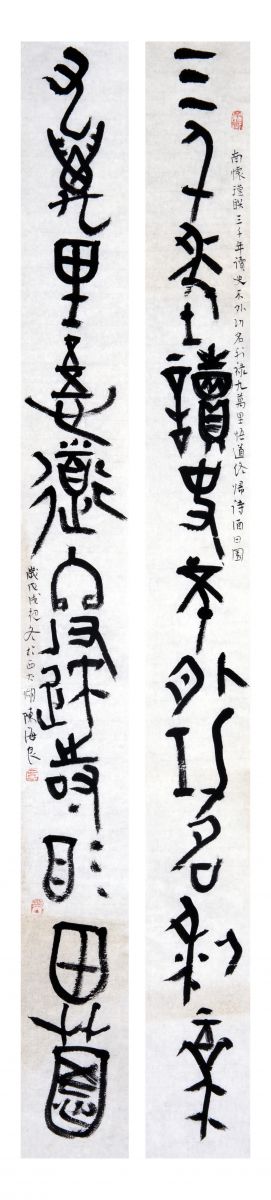 南懷瑾联三千年讀史不外功名利祿九萬里悟道終歸詩酒田園
三千年讀史不外功名利祿
九萬里悟道終歸詩酒田園
歲戊戌初冬於西太湖陳海良